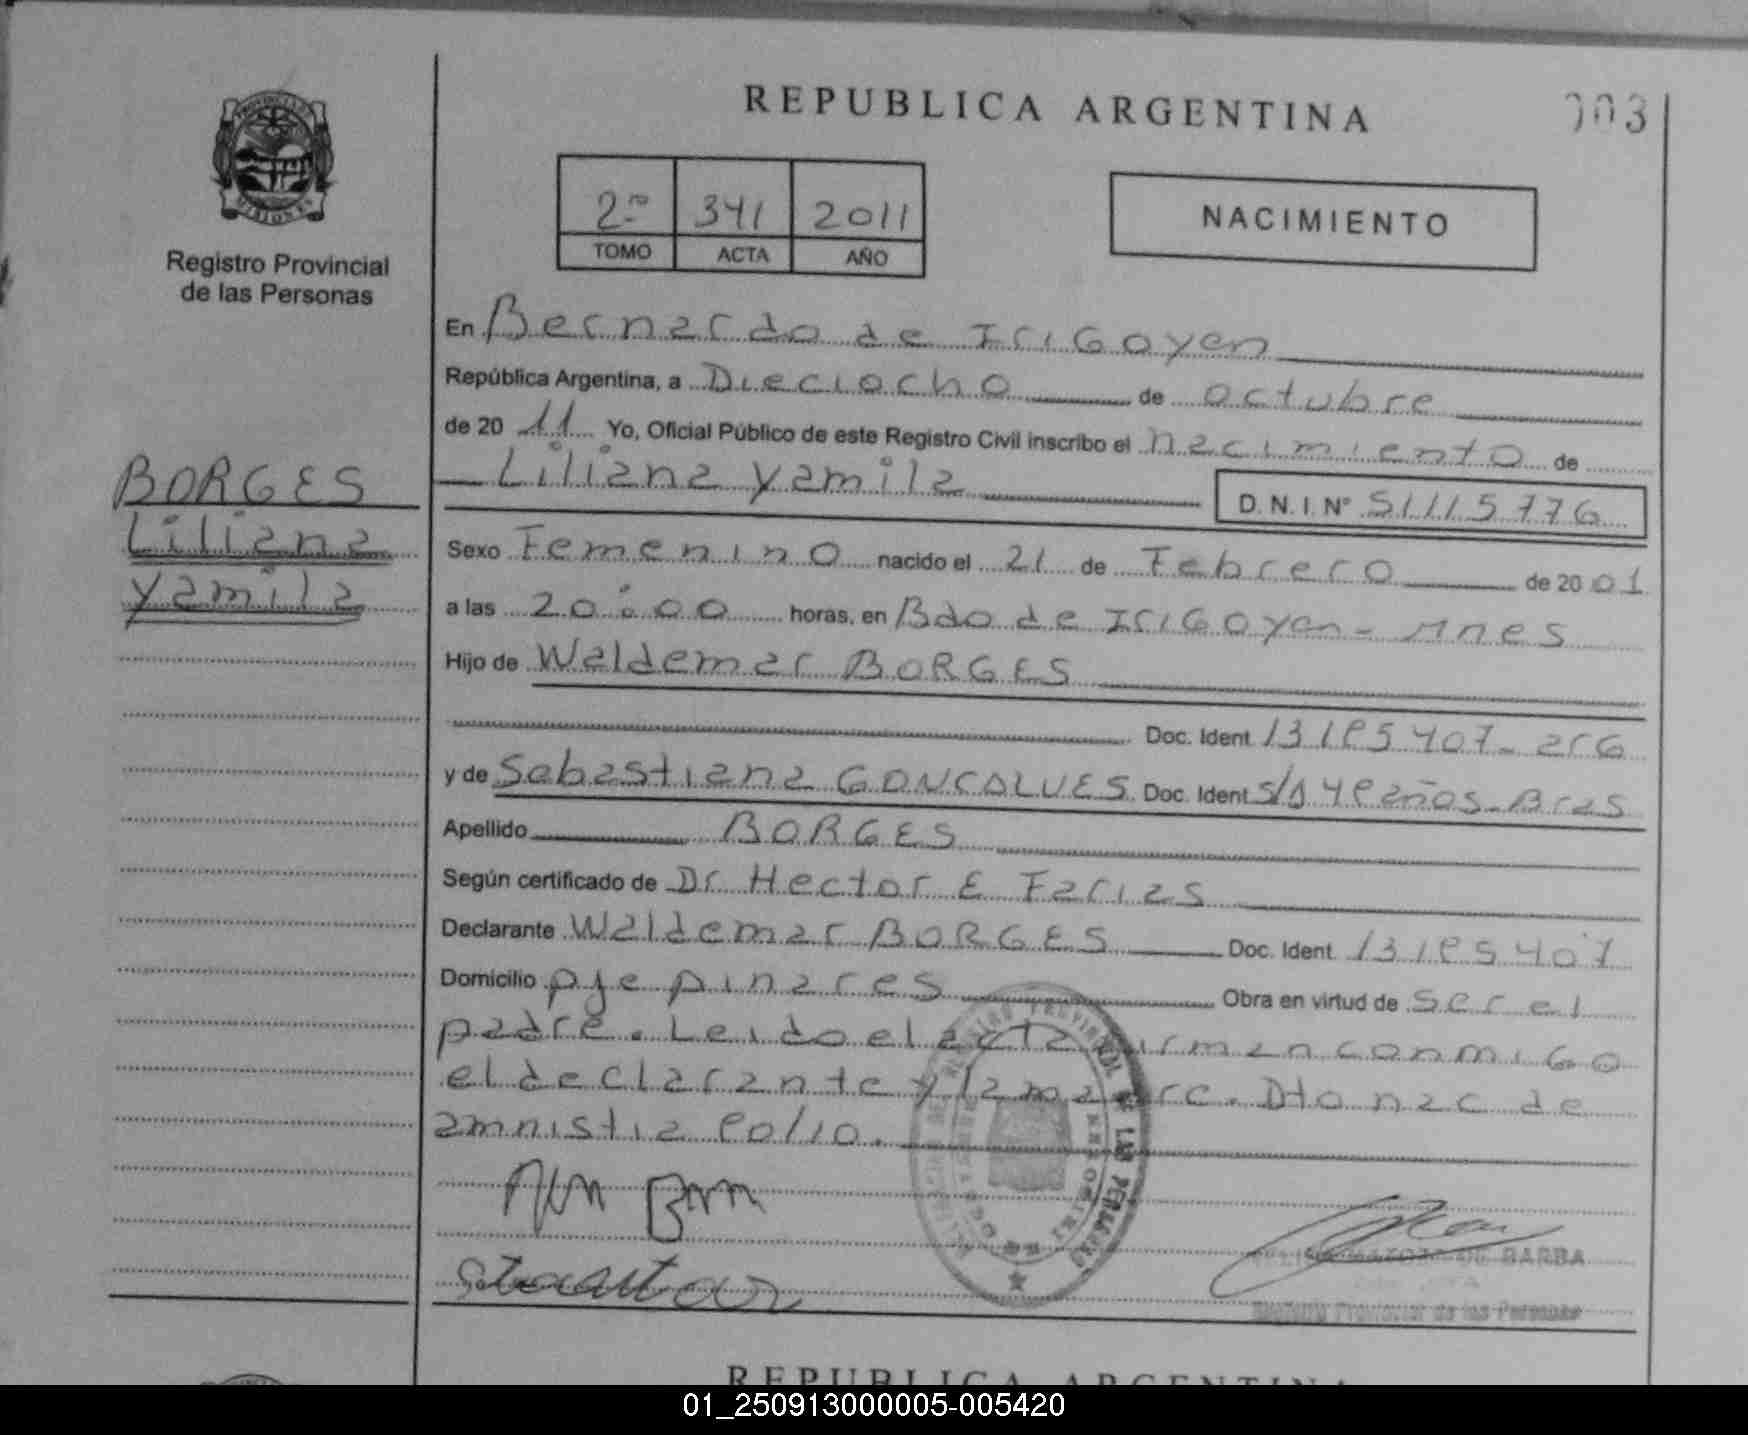 REPUBLICA ARGENTINA
003
PROVINCIA DE MISIONES
Registro Provincial
de las Personas
2º 341 2011
TOMO ACTA AÑO
NACIMIENTO
En Bernardo de IriGoyen
República Argentina, a Dieciocho de octubre
de 20 11 Yo, Oficial Público de este Registro Civil inscribo el nacimiento de
Liliana Yamila D. N. I. Nº 51115776
BORGES
Liliana
Yamila
Sexo Femenino nacido el 21 de Febrero de 20 01
a las 20:00 horas, en Bdo de IriGoyen - Mnes
Hijo de Waldemar BORGES
Doc. Ident 13185407-arG
y de Sebastiana GONCALVES Doc. Ident s/d 48 años-Bras
Apellido BORGES
Según certificado de Dr Hector E Farias
Declarante Waldemar BORGES Doc. Ident. 13185407
Domicilio pje pinares Obra en virtud de ser el
padre. Leido el acta firman conmigo
el declarante y la madre. Dto nac de
amnistia 80/10.
REGISTRO PROVINCIAL DE LAS PERSONAS
DE BARBA
Registro Provincial de las Personas
REPUBLICA ARGENTINA
01_250913000005-005420